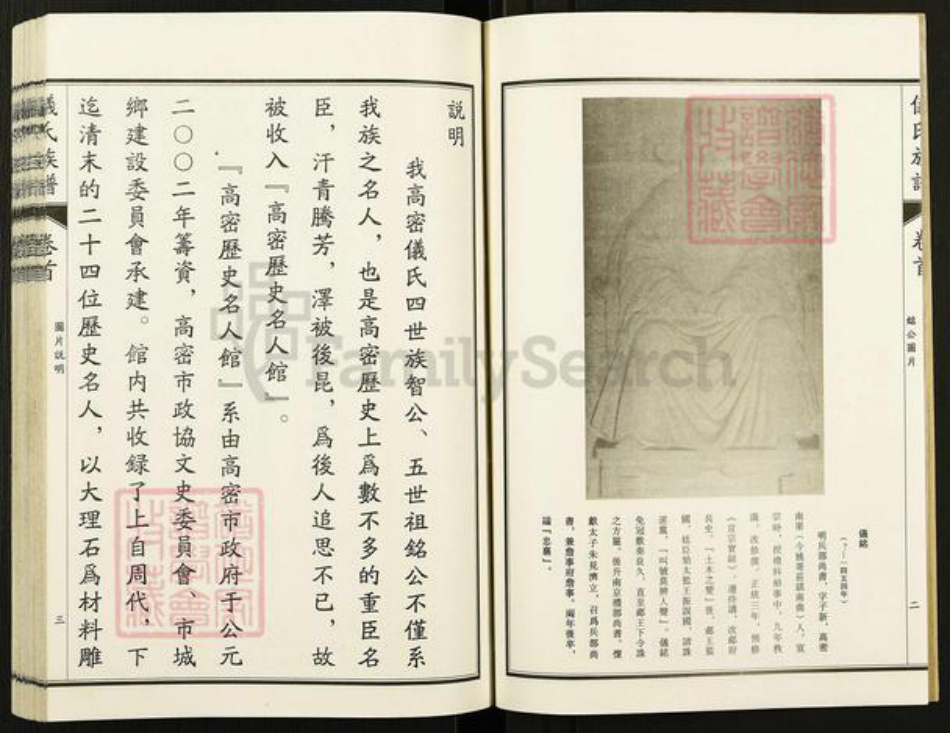 儀氏族譜
卷首
銘公圖片
二
儀銘
(？—一四五四年)
明兵部尚書，字子新，高密
宗時，授禮科給事中，九年秩
滿，改修撰。正統三年，預修
《宣宗實錄》，遷侍講，改郕府
長史。「土木之變」後，郕王監
國，廷臣劾太監王振誤國，請誅
免冠歡奏良久，直至郕王下令誅
之方罷。後升南京禮部尚書。懷
獻太子朱見濟立，召爲兵部尚
書，兼詹事府詹事。兩年後卒，
諡「忠襄」。
說明
我高密儀氏四世族智公、五世祖銘公不僅系
我族之名人，也是高密歷史上爲數不多的重臣名
臣，汗青騰芳，澤被後昆，爲後人追思不已，故
被收入『高密歷史名人館』。
『高密歷史名人館』系由高密市政府于公元
二〇〇二年籌資，高密市政協文史委員會、市城
鄉建設委員會承建。館内共收録了上自周代，下
迄清末的二十四位歷史名人，以大理石爲材料雕
儀氏族譜
卷首
圖片説明
三
FamilySearch